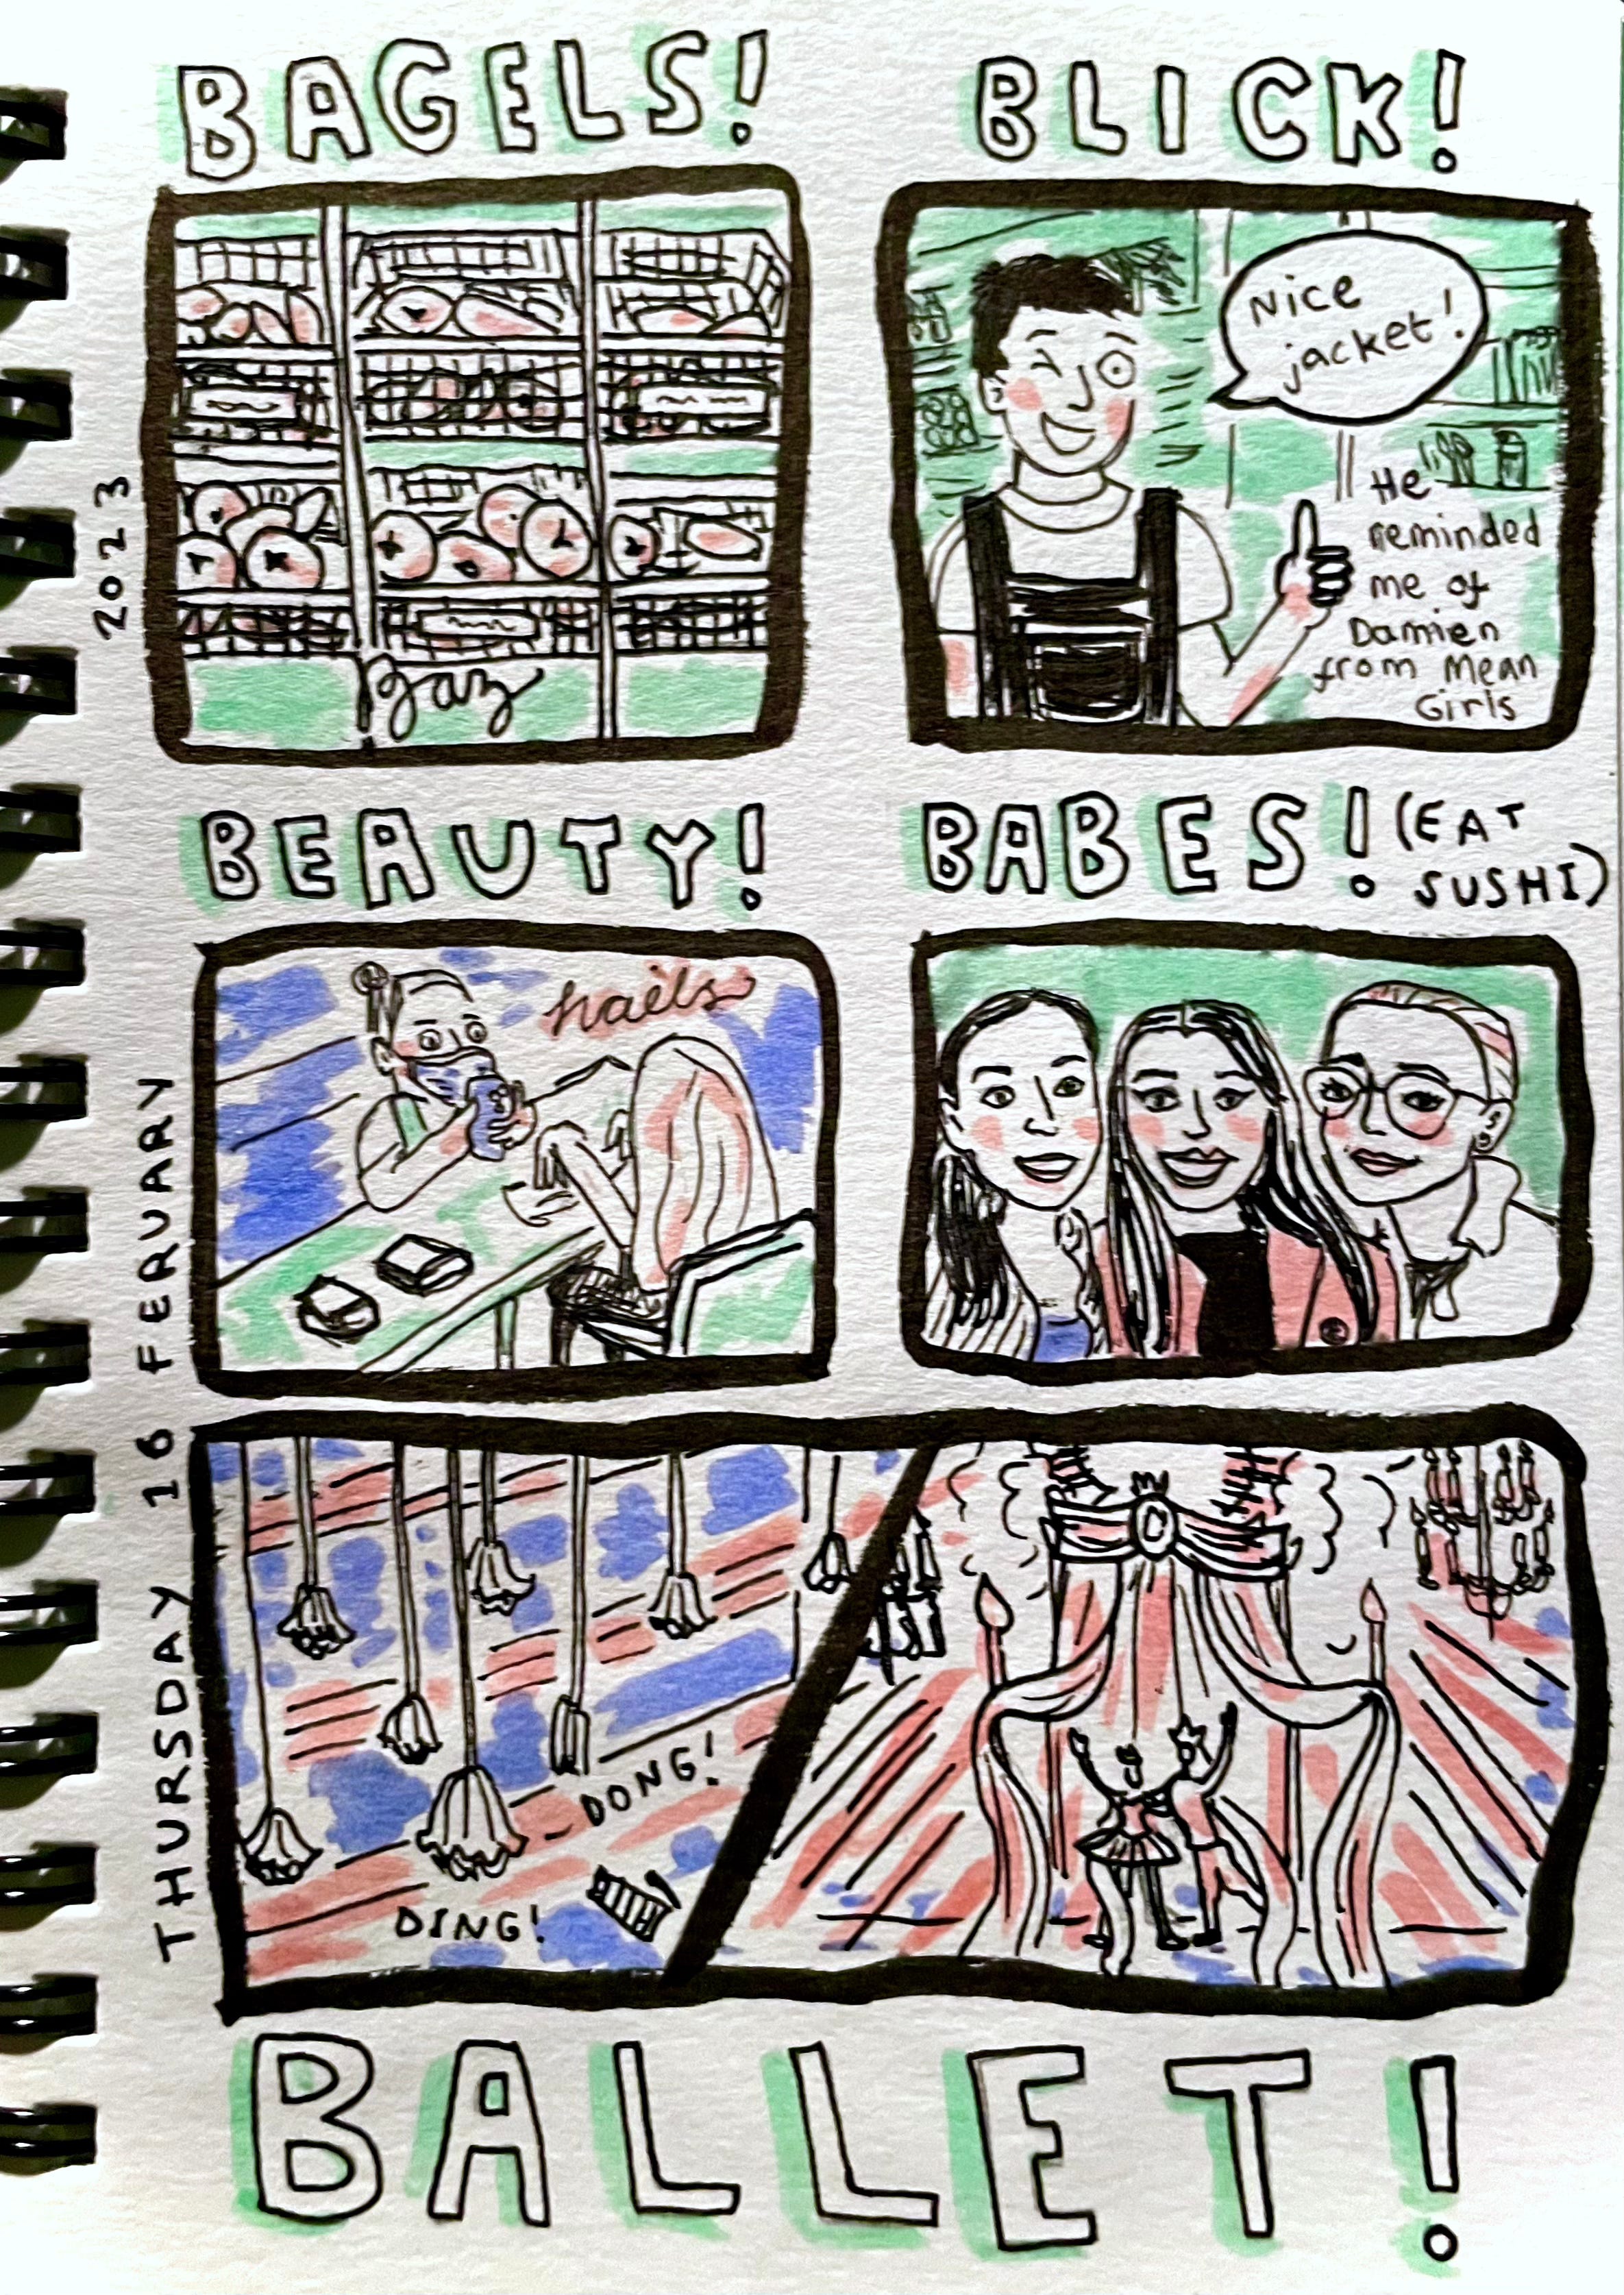 BAGELS!
BLICK!
Nice
jacket!
He
reminded
me of
Damien
from Mean
Girls
BEAUTY!
nails
BABES! (EAT
SUSHI)
DONG!
DING!
BALLET!
THURSDAY 16 FERUARY 2023